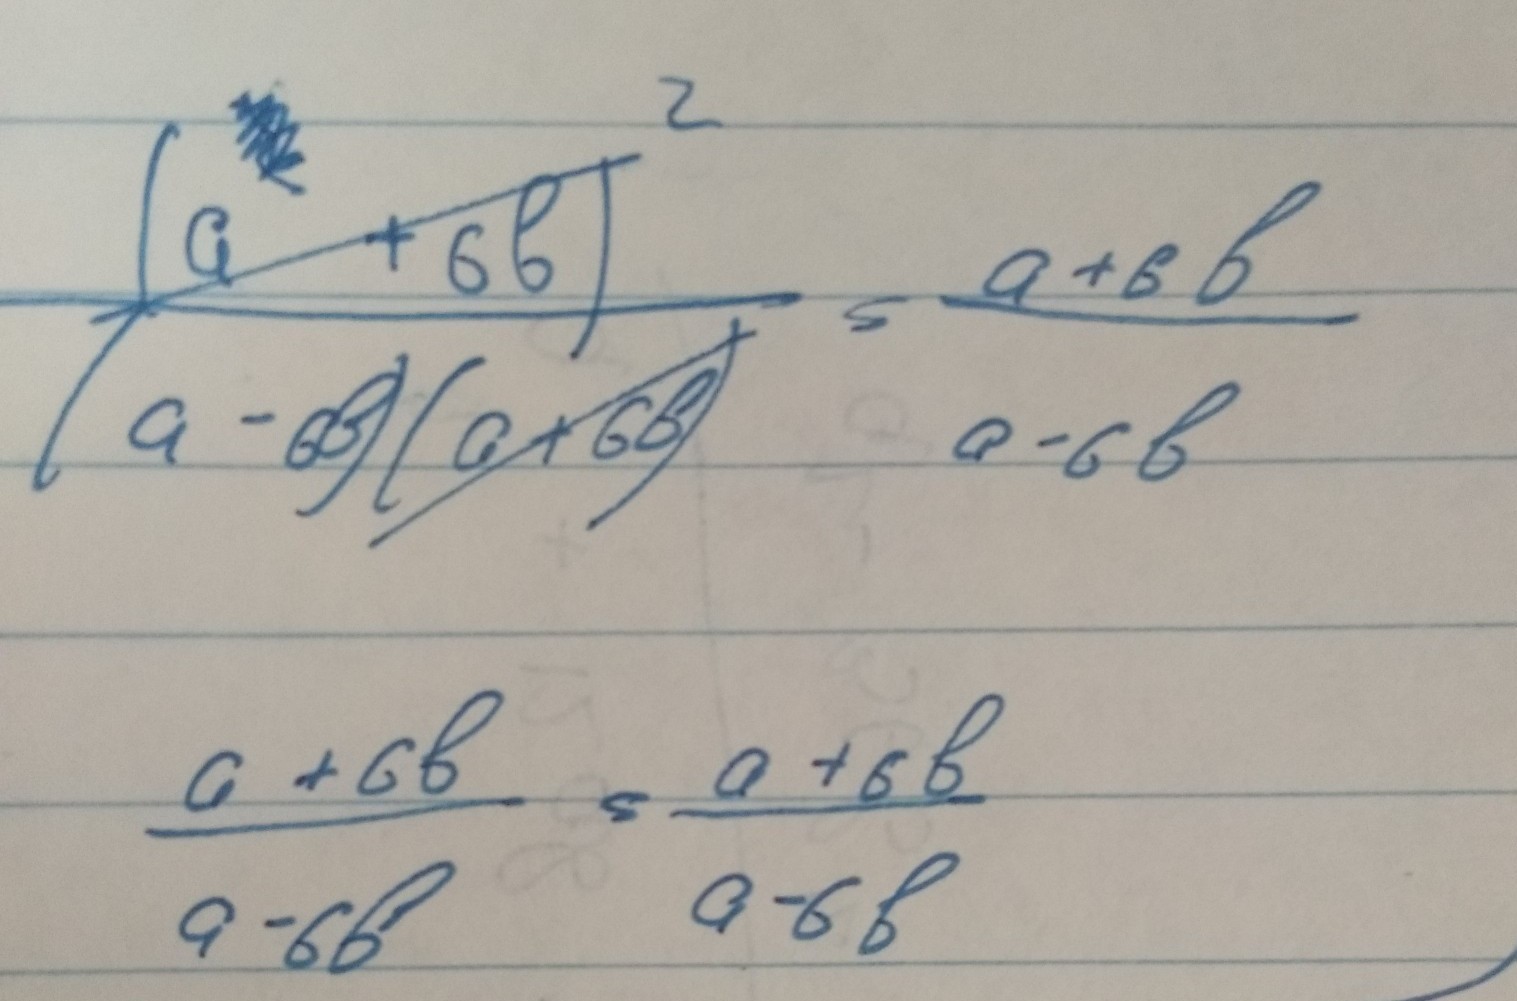 (a + 6b)² / (a - 6b)(a + 6b) = a + 6b / a - 6b
a + 6b / a - 6b = a + 6b / a - 6b